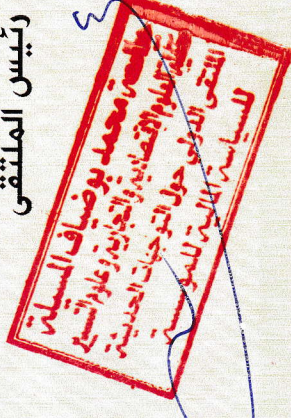 رئيس الملتقى
جامعة محمد بوضياف المسيلة
كلية العلوم الاقتصادية والتجارية وعلوم التسيير
الملتقى الدولي حول التوجهات الحديثة
للسياسة المالية للمؤسسة